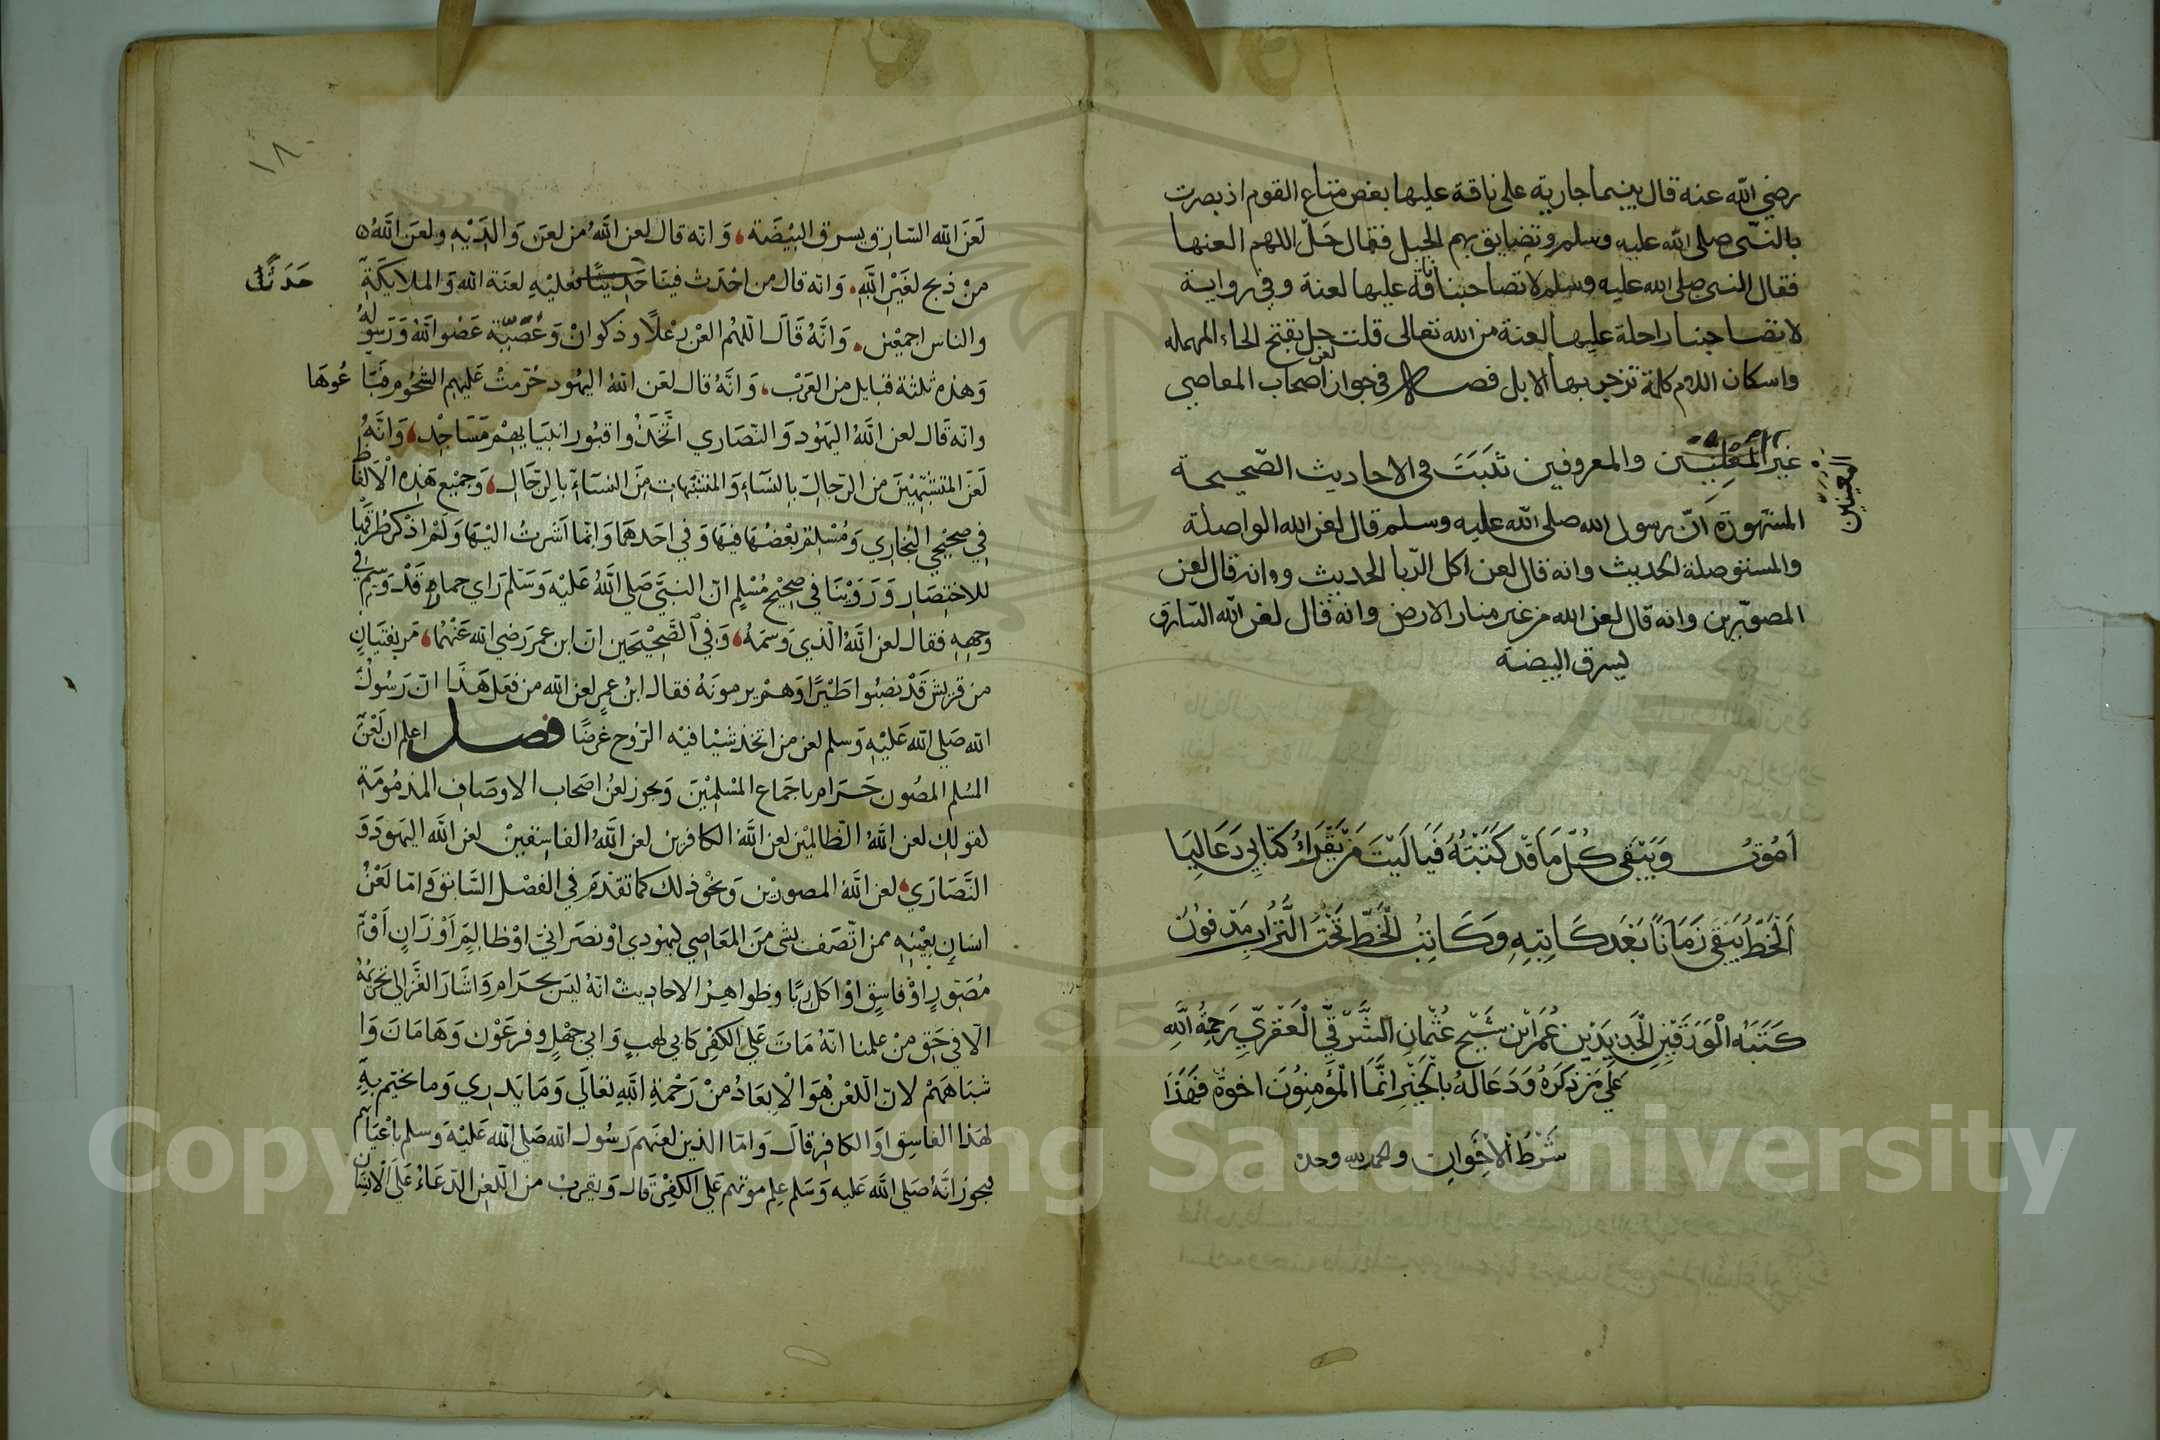 رضي الله عنه قال بينما جارية على ناقة عليها بعض متاع القوم اذ بصرت
بالنبي صلى الله عليه وسلم وتضايق بهم الجبل فقال حل اللهم العنها
فقال النبي صلى الله عليه وسلم لا تصاحبنا ناقة عليها لعنة وفي رواية
لا تصاحبنا راحلة عليها لعنة من الله تعالى قلت حل بفتح الحاء المهمله
واسكان اللام كلمة تزجر بها الابل فصل في جواز لعن اصحاب المعاصي
غير المعينين والمعروفين ثبت في الاحاديث الصحيحة
المعينين
المشهورة ان رسول الله صلى الله عليه وسلم قال لعن الله الواصلة
والمستوصلة الحديث وانه قال لعن اكل الربا الحديث وانه قال لعن
المصورين وانه قال لعن الله من غير منار الارض وانه قال لعن الله السارق
يسرق البيضة
اموت ويبقى كل ما قد كتبته فيا ليت من يقرا كتابي دعا ليا
الخط يبقى زمانا بعد كاتبه وكاتب الخط تحت التراب مدفون
كتبه الورقين الجديدين عمر ابن شيخ عثمان الشرقي العقري رحمة الله
على من ذكره ودعا له بالخير انما المؤمنون اخوة فهذا
شرط الاخوان والحمد لله وحده
١٨٠
لعن الله السارق يسرق البيضة، وانه قال لعن الله من لعن والديه ولعن الله
من ذبح لغير الله، وانه قال من احدث فينا حديثا فعليه لعنة الله والملايكة
حدثا
والناس اجمعين، وانه قال اللهم العن رعلا وذكوان وعصية عصوا الله ورسوله
وهذه ثلثة قبايل من العرب، وانه قال لعن الله اليهود حرمت عليهم الشحوم فباعوها
وانه قال لعن الله اليهود والنصاري اتخذوا قبور انبيايهم مساجد، وانه
لعن المتشبهين من الرجال بالنساء والمتشبهات من النساء بالرجال، وجميع هذه الالفاظ
في صحيحي البخاري ومسلم بعضها فيها وفي احدهما وانما اشرت اليها ولم اذكر طرقها
للاختصار وروينا في صحيح مسلم ان النبي صلي الله عليه وسلم راي حمارا قد وسم في
وجهه فقال لعن الله الذي وسمه، وفي الصحيحين ان ابن عمر رضي الله عنهما، مر بفتيان
من قريش قد نصبوا طيرا وهم يرمونه فقال ابن عمر لعن الله من فعل هذا ان رسول
الله صلي الله عليه وسلم لعن من اتخذ شيا فيه الروح غرضا فصل اعلم ان لعن
المسلم المصون حرام باجماع المسلمين ويجوز لعن اصحاب الاوصاف المذمومة
لقولك لعن الله الظالمين لعن الله الكافرين لعن الله الفاسقين لعن الله اليهود و
النصاري، لعن الله المصورين ونحو ذلك كما تقدم في الفصل السابق واما لعن
انسان بعينه ممن اتصف بشي من المعاصي ليهودي او نصراني او ظالم او زان او
مصور او فاسق او اكل ربا وظواهر الاحاديث انه ليس بحرام واشار الغزالي تحريمه
الا في حق من علمنا انه مات علي الكفر كابي لهب وابي جهل وفرعون وهامان وا
شباههم لان اللعن هو الابعاد من رحمة الله تعالي وما يدري وما يختم به
لهذا الفاسق او الكافر قال واما الذين لعنهم رسول الله صلي الله عليه وسلم باعيانهم
فيجوز انه صلي الله عليه وسلم علم موتهم علي الكفر قال ويقرب من اللعن الدعاء علي الانسان
Copyright © King Saud University
1957